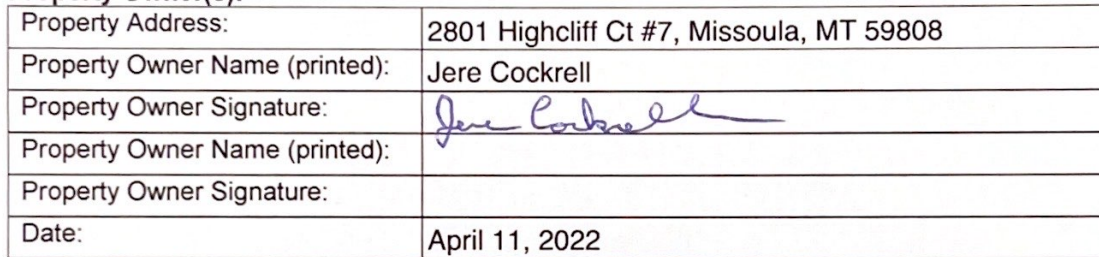 Property Owner(s):
Property Address: 2801 Highcliff Ct #7, Missoula, MT 59808
Property Owner Name (printed): Jere Cockrell
Property Owner Signature: Jere Cockrell
Property Owner Name (printed):
Property Owner Signature:
Date: April 11, 2022